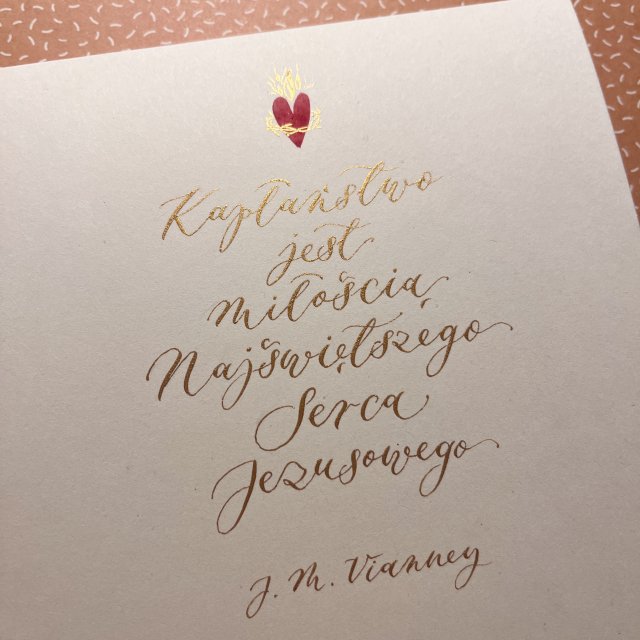 Kapłaństwo
jest
miłością
Najświętszego
Serca
Jezusowego
J. M. Vianney